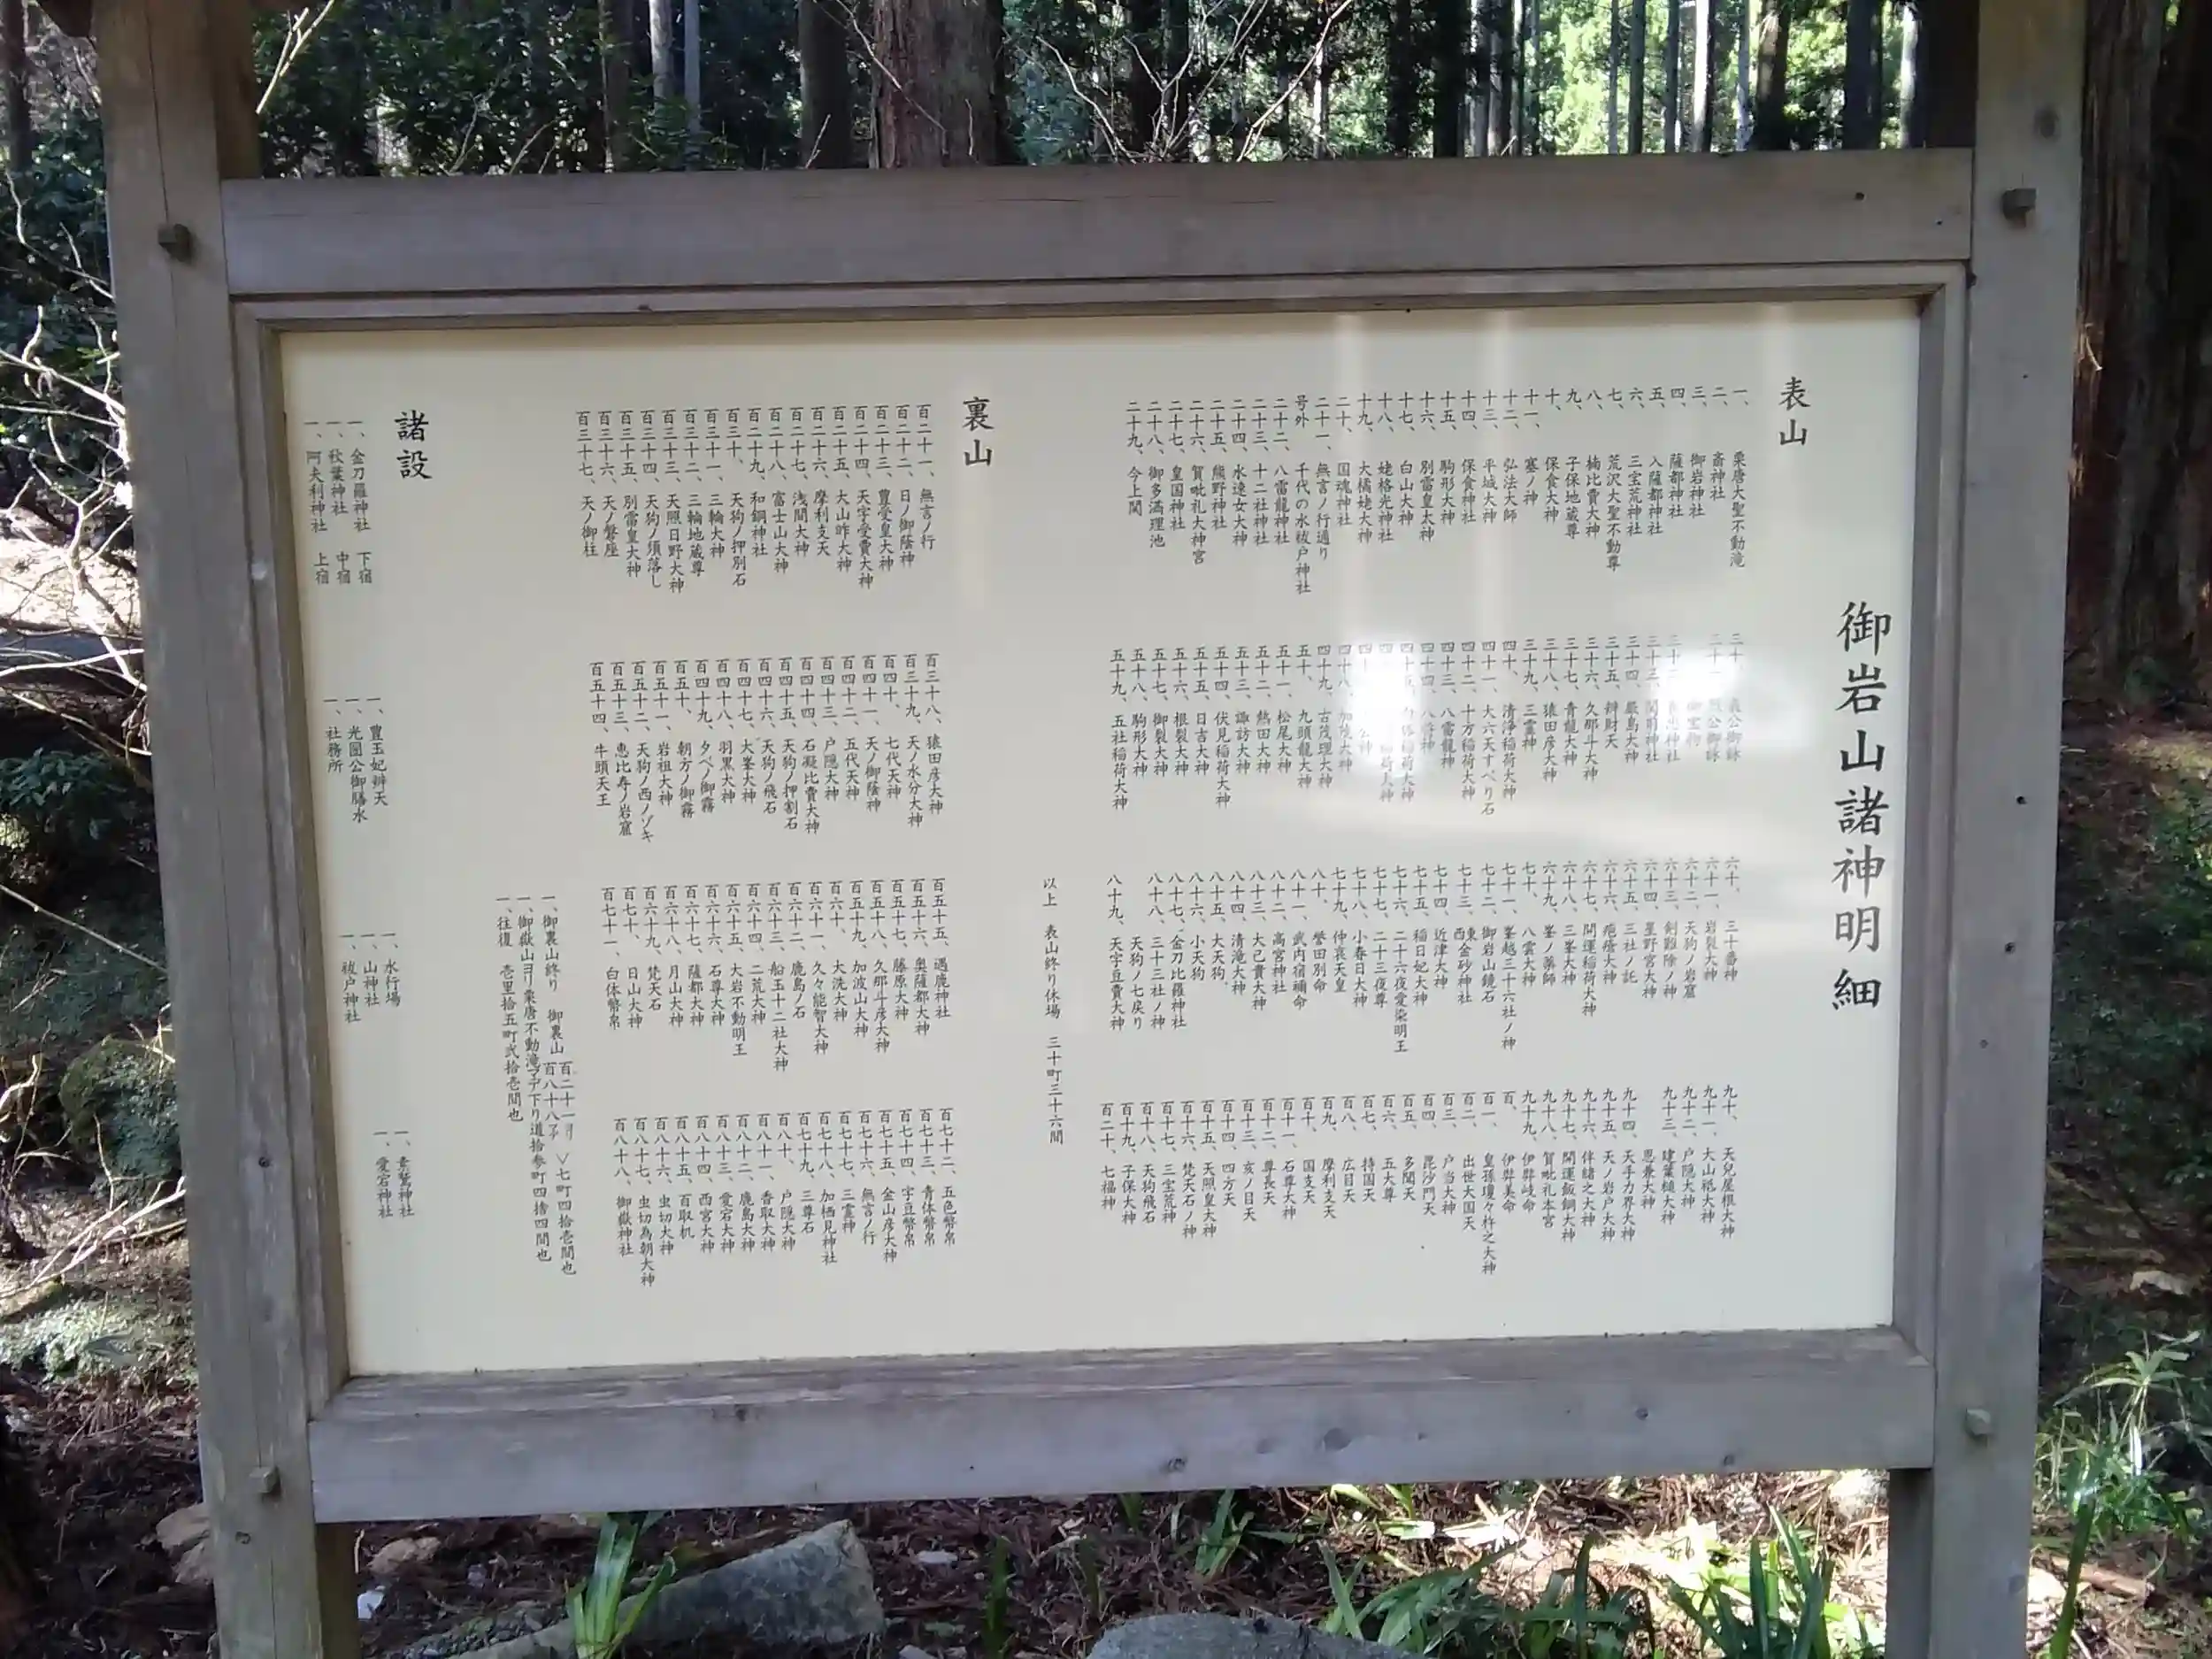 御岩山諸神明細
表山
一、 栗唐大聖不動滝
二、 斎神社
三、 御岩神社
四、 薩都神社
五、 入薩都神社
六、 三宝荒神社
七、 荒沢大聖不動尊
八、 楠比賣大神
九、 子保地蔵尊
十、 保食大神
十一、 塞ノ神
十二、 弘法大師
十三、 平城大神
十四、 保食神社
十五、 駒形大神
十六、 別雷皇太神
十七、 白山大神
十八、 姥格光神社
十九、 大橘姥大神
二十、 国魂神社
二十一、 無言ノ行通り
号外 千代の水祓戸神社
二十二、 八雷龍神社
二十三、 十二社神社
二十四、 水速女大神
二十五、 熊野神社
二十六、 賀毗礼大神宮
二十七、 皇国神社
二十八、 御多満理池
二十九、 今上関
三十、 義公御詠
三十四、 厳島大神
三十五、 辨財天
三十六、 久那斗大神
三十七、 青龍大神
三十八、 猿田彦大神
三十九、 三霊神
四十、 清浄稲荷大神
四十一、 大六天すべり石
四十二、 十万稲荷大神
四十三、 八雷龍神
四十八、 加茂大神
四十九、 古茂理大神
五十、 九頭龍大神
五十一、 松尾大神
五十二、 熱田大神
五十三、 諏訪大神
五十四、 伏見稲荷大神
五十五、 日吉大神
五十六、 根裂大神
五十七、 御裂大神
五十八、 駒形大神
五十九、 五社稲荷大神
六十、 三十番神
六十一、 岩裂大神
六十二、 天狗ノ岩窟
六十三、 剣難除ノ神
六十四、 星野宮大神
六十五、 三社ノ託
六十六、 疱瘡大神
六十七、 開運稲荷大神
六十八、 三峯大神
六十九、 峯ノ薬師
七十、 八雲大神
七十一、 峯越三十六社ノ神
七十二、 御岩山鏡石
七十三、 東西金砂神社
七十四、 近津大神
七十五、 稲日妃大神
七十六、 二十六夜愛染明王
七十七、 二十三夜尊
七十八、 小春日大神
七十九、 仲哀天皇
八十、 誉田別命
八十一、 武内宿禰命
八十二、 高宮神社
八十三、 大己貴大神
八十四、 清滝大神
八十五、 大天狗、
八十六、 小天狗
八十七、 金刀比羅神社
八十八、 三十三社ノ神
天狗ノ七戻り
八十九、 天宇豆賣大神
九十、 天兒屋根大神
九十一、 大山祇大神
九十二、 戸隠大神
九十三、 建葉槌大神
思兼大神
九十四、 天手力界大神
九十五、 天ノ岩戸大神
九十六、 伴緒之大神
九十七、 開運飯綱大神
九十八、 賀毗礼本宮
九十九、 伊弉岐命
百、 伊弉美命
百一、 皇孫瓊々杵之大神
百二、 出世大国天
百三、 戸当大神
百四、 毘沙門天
百五、 多聞天
百六、 五大尊
百七、 持国天
百八、 広目天
百九、 摩利支天
百十、 国支天
百十一、 石尊大神
百十二、 尊長天
百十三、 亥ノ日天
百十四、 四方天
百十五、 天照皇大神
百十六、 梵天石ノ神
百十七、 三宝荒神
百十八、 天狗飛石
百十九、 子保大神
百二十、 七福神
以上 表山終り休場 三十町三十六間
裏山
百二十一、 無言ノ行
百二十二、 日ノ御蔭神
百二十三、 豊受皇大神
百二十四、 天宇受賣大神
百二十五、 大山昨大神
百二十六、 摩利支天
百二十七、 浅間大神
百二十八、 富士山大神
百二十九、 和銅神社
百三十、 天狗ノ押別石
百三十一、 三輪大神
百三十二、 三輪地蔵尊
百三十三、 天照日野大神
百三十四、 天狗ノ須落し
百三十五、 別雷皇大神
百三十六、 天ノ磐座
百三十七、 天ノ御柱
百三十八、 猿田彦大神
百三十九、 天ノ水分大神
百四十、 七代天神
百四十一、 天ノ御蔭神
百四十二、 五代天神
百四十三、 戸隠大神
百四十四、 石凝比賣大神
百四十五、 天狗ノ押割石
百四十六、 天狗ノ飛石
百四十七、 大峯大神
百四十八、 羽黒大神
百四十九、 夕べノ御霧
百五十、 朝方ノ御霧
百五十一、 岩祖大神
百五十二、 天狗ノ西ノゾキ
百五十三、 恵比寿ノ岩窟
百五十四、 牛頭天王
百五十五、 過鹿神社
百五十六、 奥薩都大神
百五十七、 藤原大神
百五十八、 久那斗彦大神
百五十九、 加波山大神
百六十、 大洗大神
百六十一、 久々能智大神
百六十二、 鹿島ノ石
百六十三、 船玉十二社大神
百六十四、 二荒大神
百六十五、 大岩不動明王
百六十六、 石尊大神
百六十七、 薩都大神
百六十八、 月山大神
百六十九、 梵天石
百七十、 日山大神
百七十一、 白体幣帛
百七十二、 五色幣帛
百七十三、 青体幣帛
百七十四、 宇豆幣帛
百七十五、 金山彦大神
百七十六、 無言ノ行
百七十七、 三霊神
百七十八、 加栖見神社
百七十九、 三尊石
百八十、 戸隠大神
百八十一、 香取大神
百八十二、 鹿島大神
百八十三、 愛宕大神
百八十四、 西宮大神
百八十五、 百取机
百八十六、 虫切大神
百八十七、 虫切為朝大神
百八十八、 御嶽神社
一、御裏山終り 御裏山 百二十一ヨリ百八十八マデ ＼七町四拾壱間也
一、御嶽山ヨリ栗唐不動滝マデ下り道拾参町四拾四間也
一、往復 壱里拾五町弐拾壱間也
諸設
一、金刀羅神社 下宿
一、秋葉神社 中宿
一、阿夫利神社 上宿
一、豊玉妃辨天
一、光圀公御膳水
一、社務所
一、水行場
一、山神社
一、祓戸神社
一、素鵞神社
一、愛宕神社